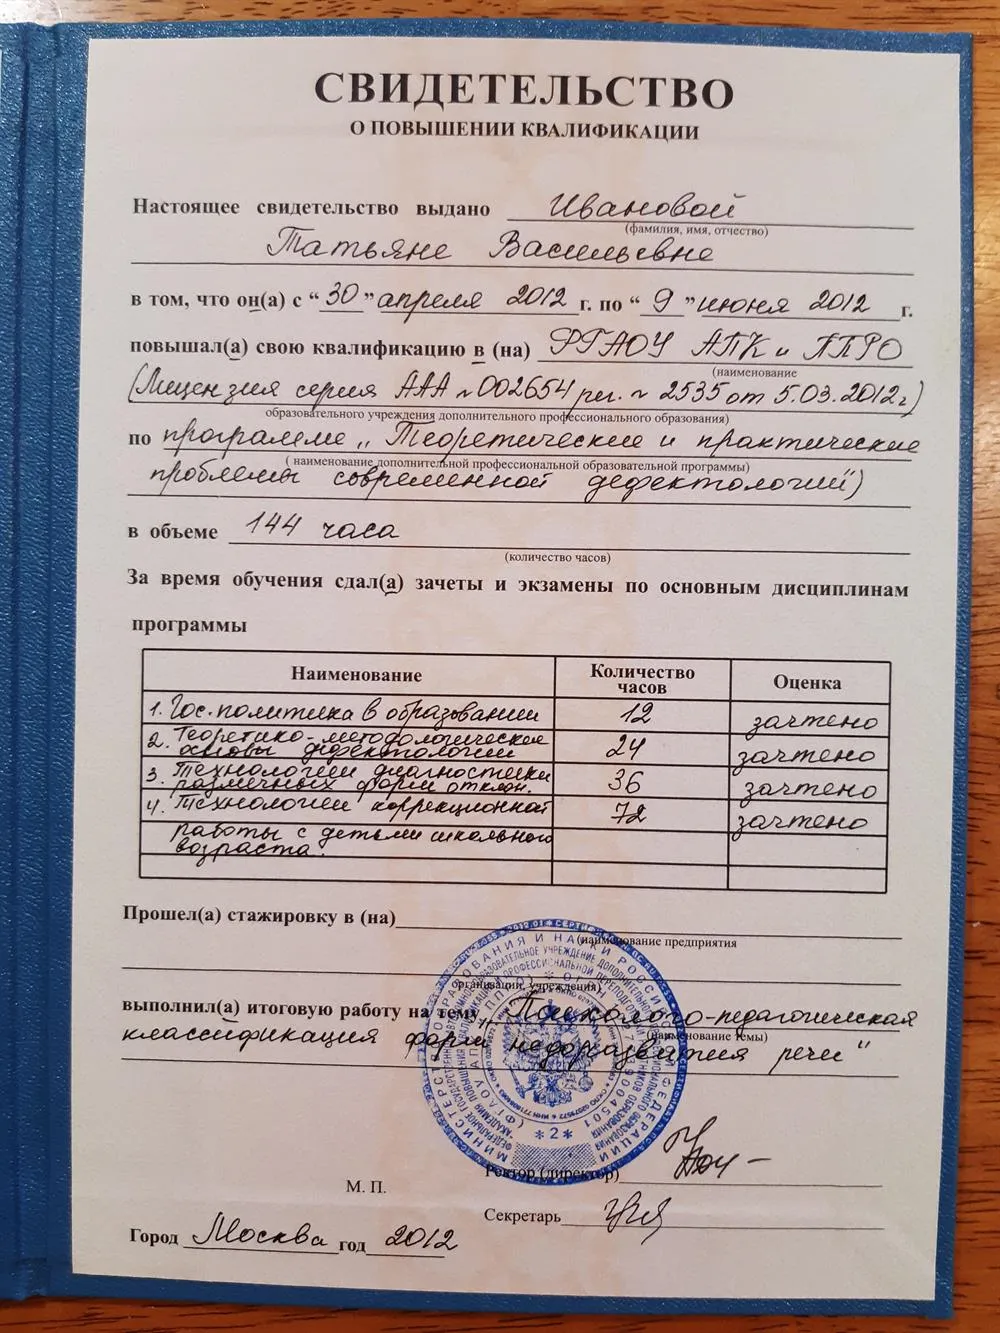 СВИДЕТЕЛЬСТВО
О ПОВЫШЕНИИ КВАЛИФИКАЦИИ
Настоящее свидетельство выдано Ивановой
(фамилия, имя, отчество)
Татьяне Васильевне
в том, что он(а) с “30” апреля 2012 г. по “9” июня 2012 г.
повышал(а) свою квалификацию в (на) ФГАОУ АПК и ППРО
(наименование
(Лицензия серия ААА №002654 рег. № 2535 от 5.03.2012г)
образовательного учреждения дополнительного профессионального образования)
по программе „Теоретические и практические
( наименование дополнительной профессиональной образовательной программы)
проблемы современной дефектологии")
в объеме 144 часа
(количество часов)
За время обучения сдал(а) зачеты и экзамены по основным дисциплинам
программы
Наименование Количество часов Оценка
1. Гос. политика в образовании 12 зачтено
2. Теоретико-методологические
основы дефектологии 24 зачтено
3. Технологии диагностики
различных форм отклон. 36 зачтено
4. Технологии коррекционной 72 зачтено
работы с детьми школьного
возраста.
Прошел(а) стажировку в (на)
(наименование предприятия
организации, учреждения)
выполнил(а) итоговую работу на тему „Психолого-педагогическая
(наименование темы)
классификация форм недоразвития речи"
*2*
Ректор (директор)
М. П.
Секретарь
Город Москва год 2012